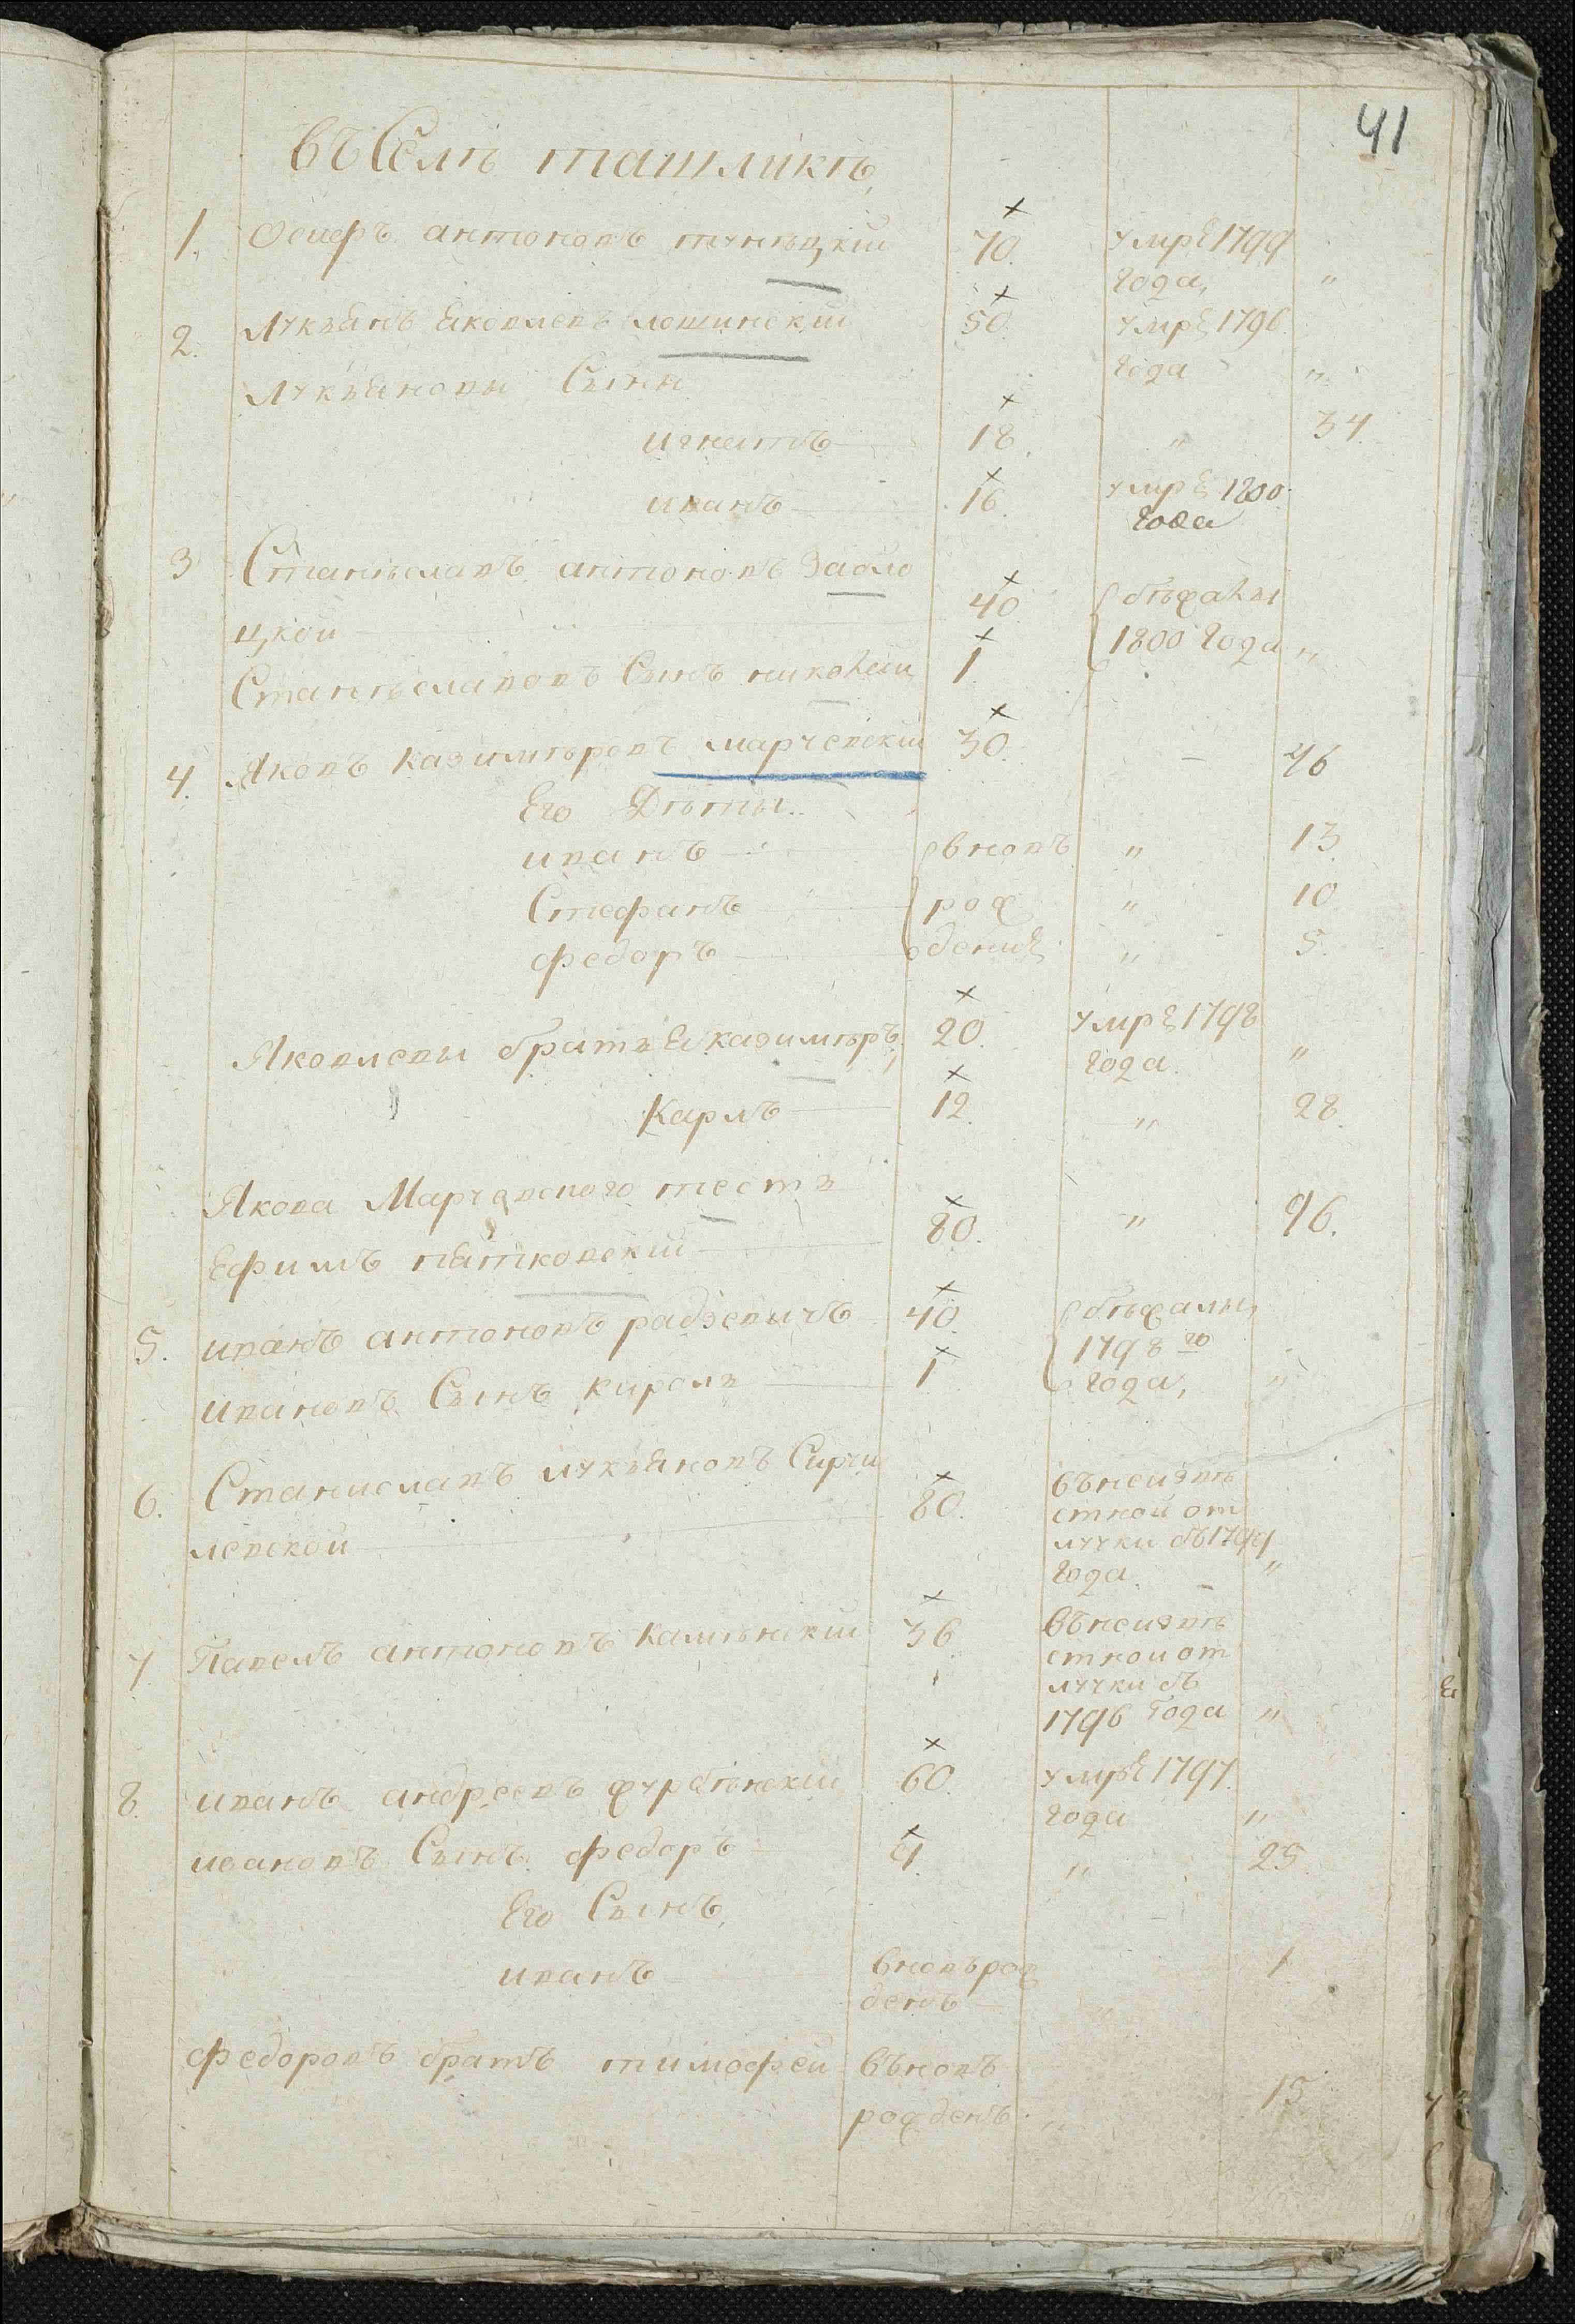 41
въ Селѣ ташликѣ
1. Осифъ антоновъ 70. умре 1799
года, "
2. Лукъянъ яковлевъ 50. умре 1796
года "
Лукъяновы Сыны
игнатъ 18. " 34.
иванъ 16. умре 1800
года
3 Станѣславъ антоновъ Забло
цкой 40 бѣжалы
Станѣславовъ Сынъ николай 1 1800 года "
4. Яковъ казимѣровъ марчевскій 30. 46
Его Дѣты
иванъ вновъ " 13
Стефанъ рож " 10
федоръ дение " 5.
Яковлевы братья казимѣръ, 20. умре 1798
года. "
Карлъ 12. " 28.
Якова Марчевского тестъ
Ефимъ пятковскій 80. " 96.
5. иванъ антоновъ радзевичъ 40. бѣжалы
1798 го
ивановъ Сынъ кироль 1 года, "
6. Станиславъ лукъяновъ Сирчи
левской 80. въ неизвѣ
стной от
лучки въ 1799
года. "
7 Павелъ антоновъ камѣнскій 36 въ неизвѣ
стной от
лучки въ
1796 года "
8. иванъ андреевъ журбѣнскій 60. умре 1797.
года "
ивановъ Сынъ федоръ 9. " 25
Его Сынъ,
иванъ вновърож 1
денъ
федоровъ братъ тимофей въновъ
рожденъ " 15